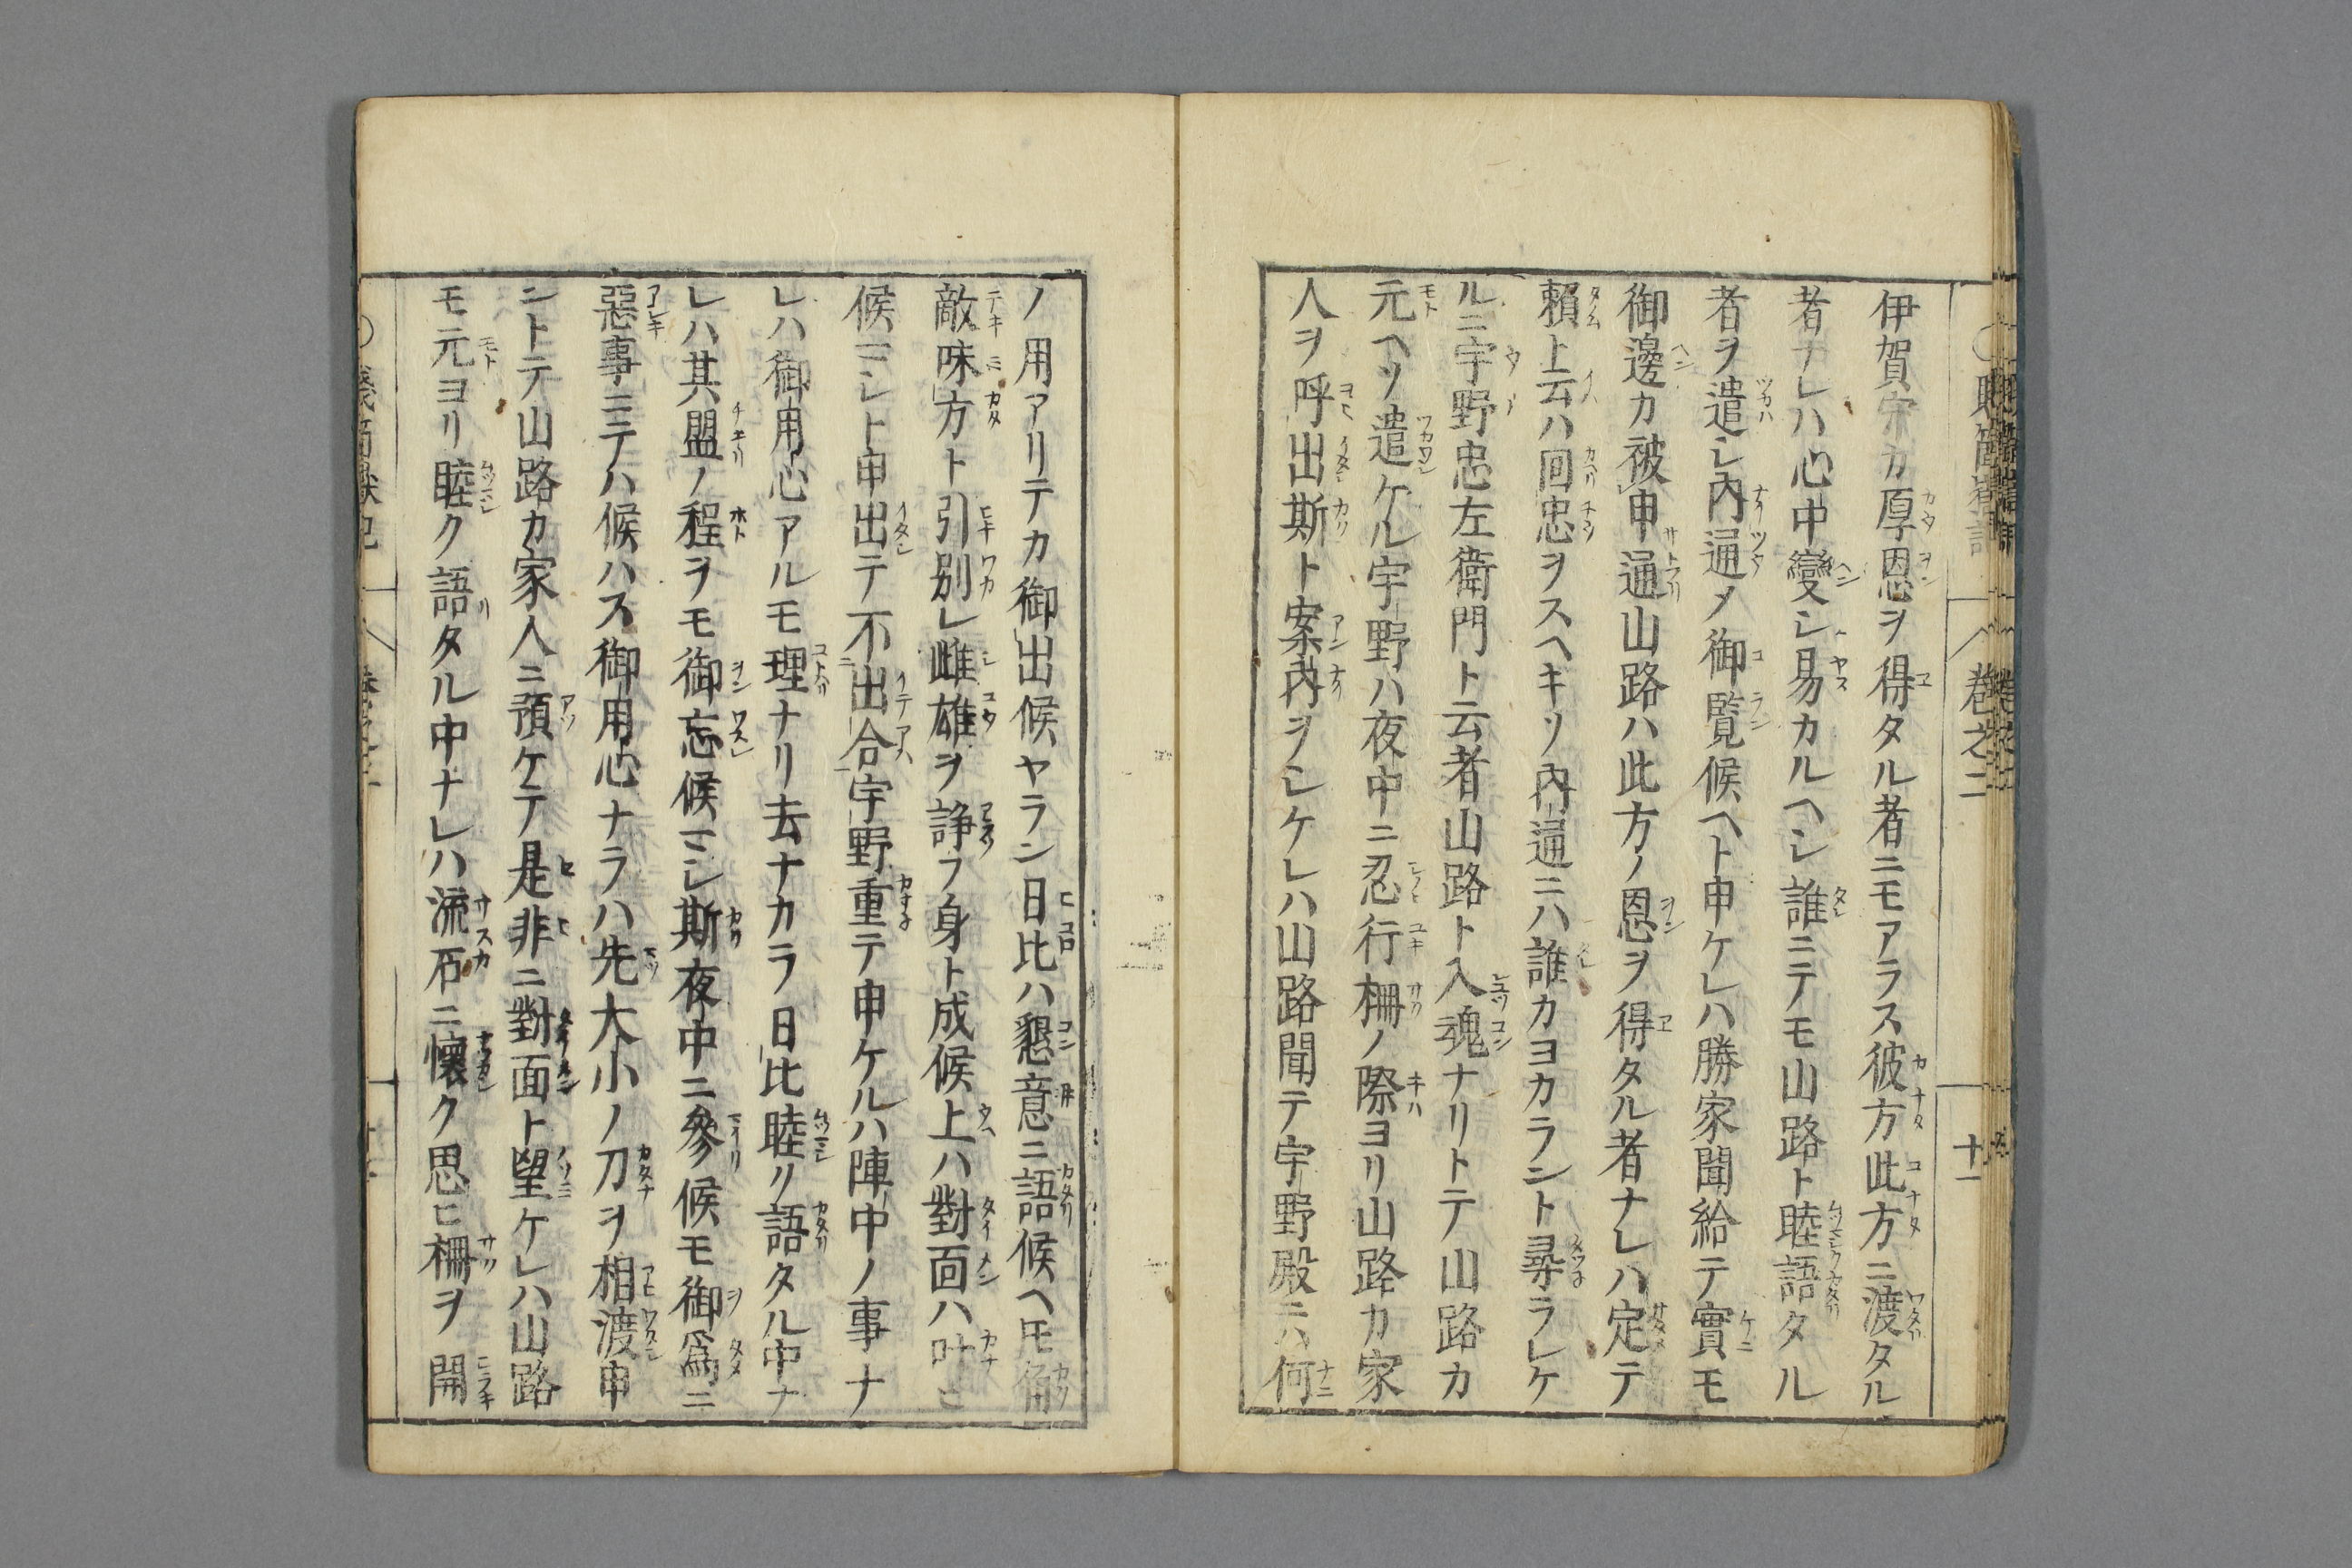 伊賀守カ厚恩ヲ得タル者ニモアラス彼方此方ニ渡タル
者ナレハ心中變シ易カルヘシ誰ニテモ山路ト睦語タル
者ヲ遣シ内通メ御覧候ヘト申ケレハ勝家聞給テ實モ
御邊カ被申通山路ハ此方ノ恩ヲ得タル者ナレハ定テ
頼ト云ハ回忠ヲスヘキソ内通ニハ誰カヨカラント尋ラレケ
ルニ宇野忠左衛門ト云者山路ト入魂ナリトテ山路カ
元ヘソ遣ケル宇野ハ夜中ニ忍行柵ノ際ヨリ山路カ家
人ヲ呼出斯ト案内ヲシケレハ山路聞テ宇野殿ニハ何
ノ用アリテカ御出候ヤラン日比ハ懇意ニ語候ヘ𪜈角
敵味方ト引別レ雌雄ヲ諍フ身ト成候上ハ對面ハ叶ヒ
候マシト申出テ不出合宇野重テ申ケルハ陣中ノ事ナ
レハ御用心アルモ理ナリ去ナカラ日比睦ク語タル中ナ
レハ其盟ノ程ヲモ御忘候マシ斯夜中ニ參候モ御爲ニ
惡事ニテハ候ハス御用心ナラハ先大小ノ刀ヲ相渡申
ントテ山路カ家人ニ預ケテ是非ニ對面ト望ケレハ山路
モ元ヨリ睦ク語タル中ナレハ流石ニ懷ク思ヒ柵ヲ開
巻之二
十一